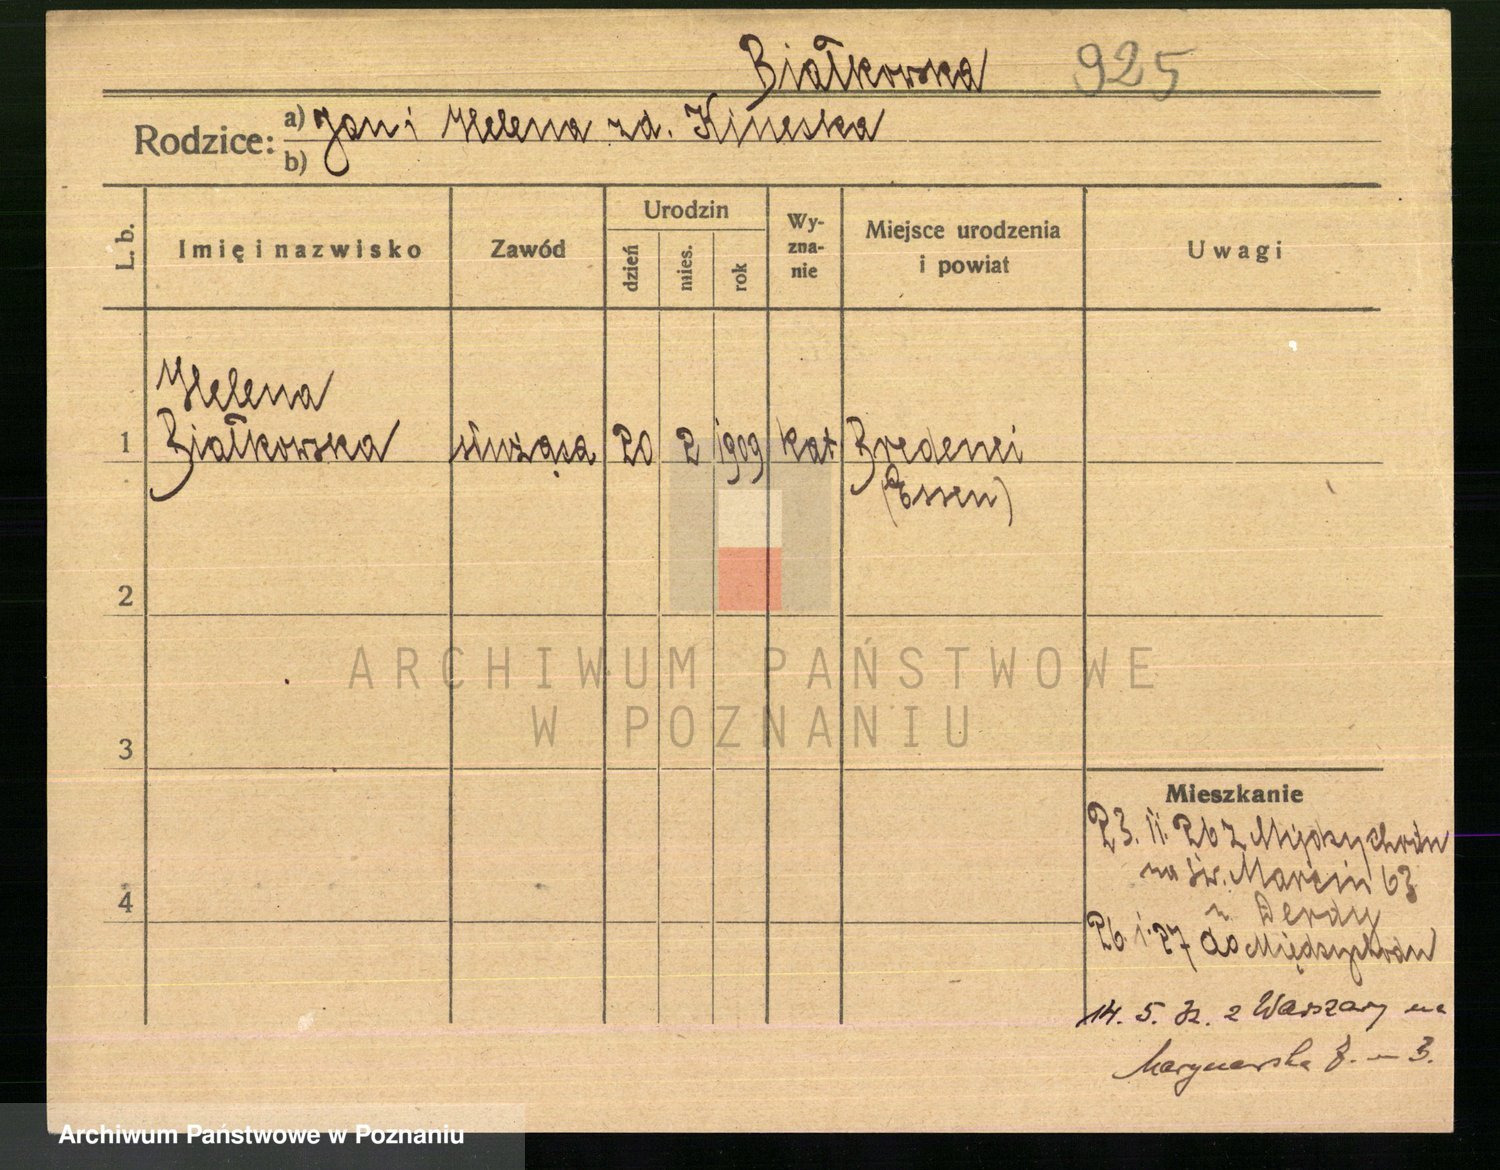 Białkowska 925
Rodzice: a) Jan i Helena zd. Kineska
b)
L. b. Imię i nazwisko Zawód Urodzin dzień mies. rok Wyznanie Miejsce urodzenia i powiat Uwagi
Helena
1 Białkowska służąca 20 2 1909 kat Bredenei
(Essen)
2
ARCHIWUM PAŃSTWOWE
W POZNANIU
3
Mieszkanie
23. 11. 26 z Międzychodu
na św. Marcin 63
4
u Derdy
26. 1. 27 do Międzychodu
14. 5. 32. z Warszawy na
Marynarska 8. m 3.
Archiwum Państwowe w Poznaniu